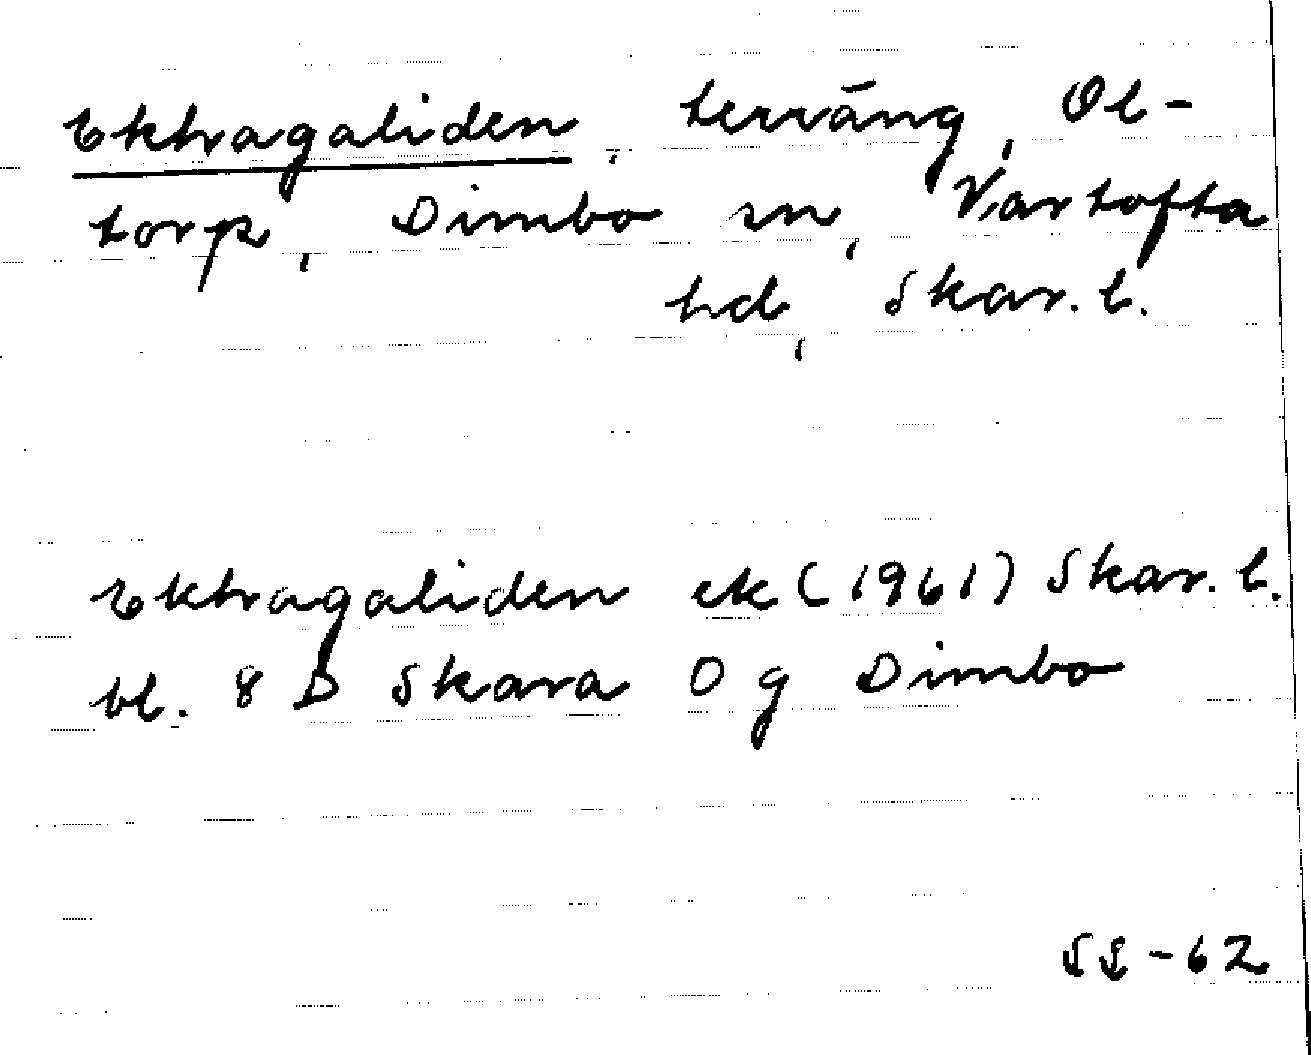 Ekhagaliden, terräng, Ol-
torp, Dimbo sn, Vartofta
hd, Skar. l.
Ekhagaliden ek (1961) Skar. l.
bl. 8 D Skara 0 g Dimbo
SS -62